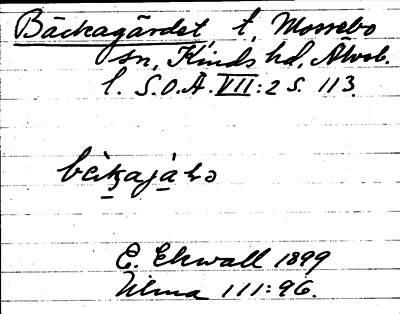 Bäckagärdet t, Mossebo
sn, Kinds hd, Älvsb.
l. S.O.Ä. VII:2 S. 113

E. Ekwall 1899
111:96.